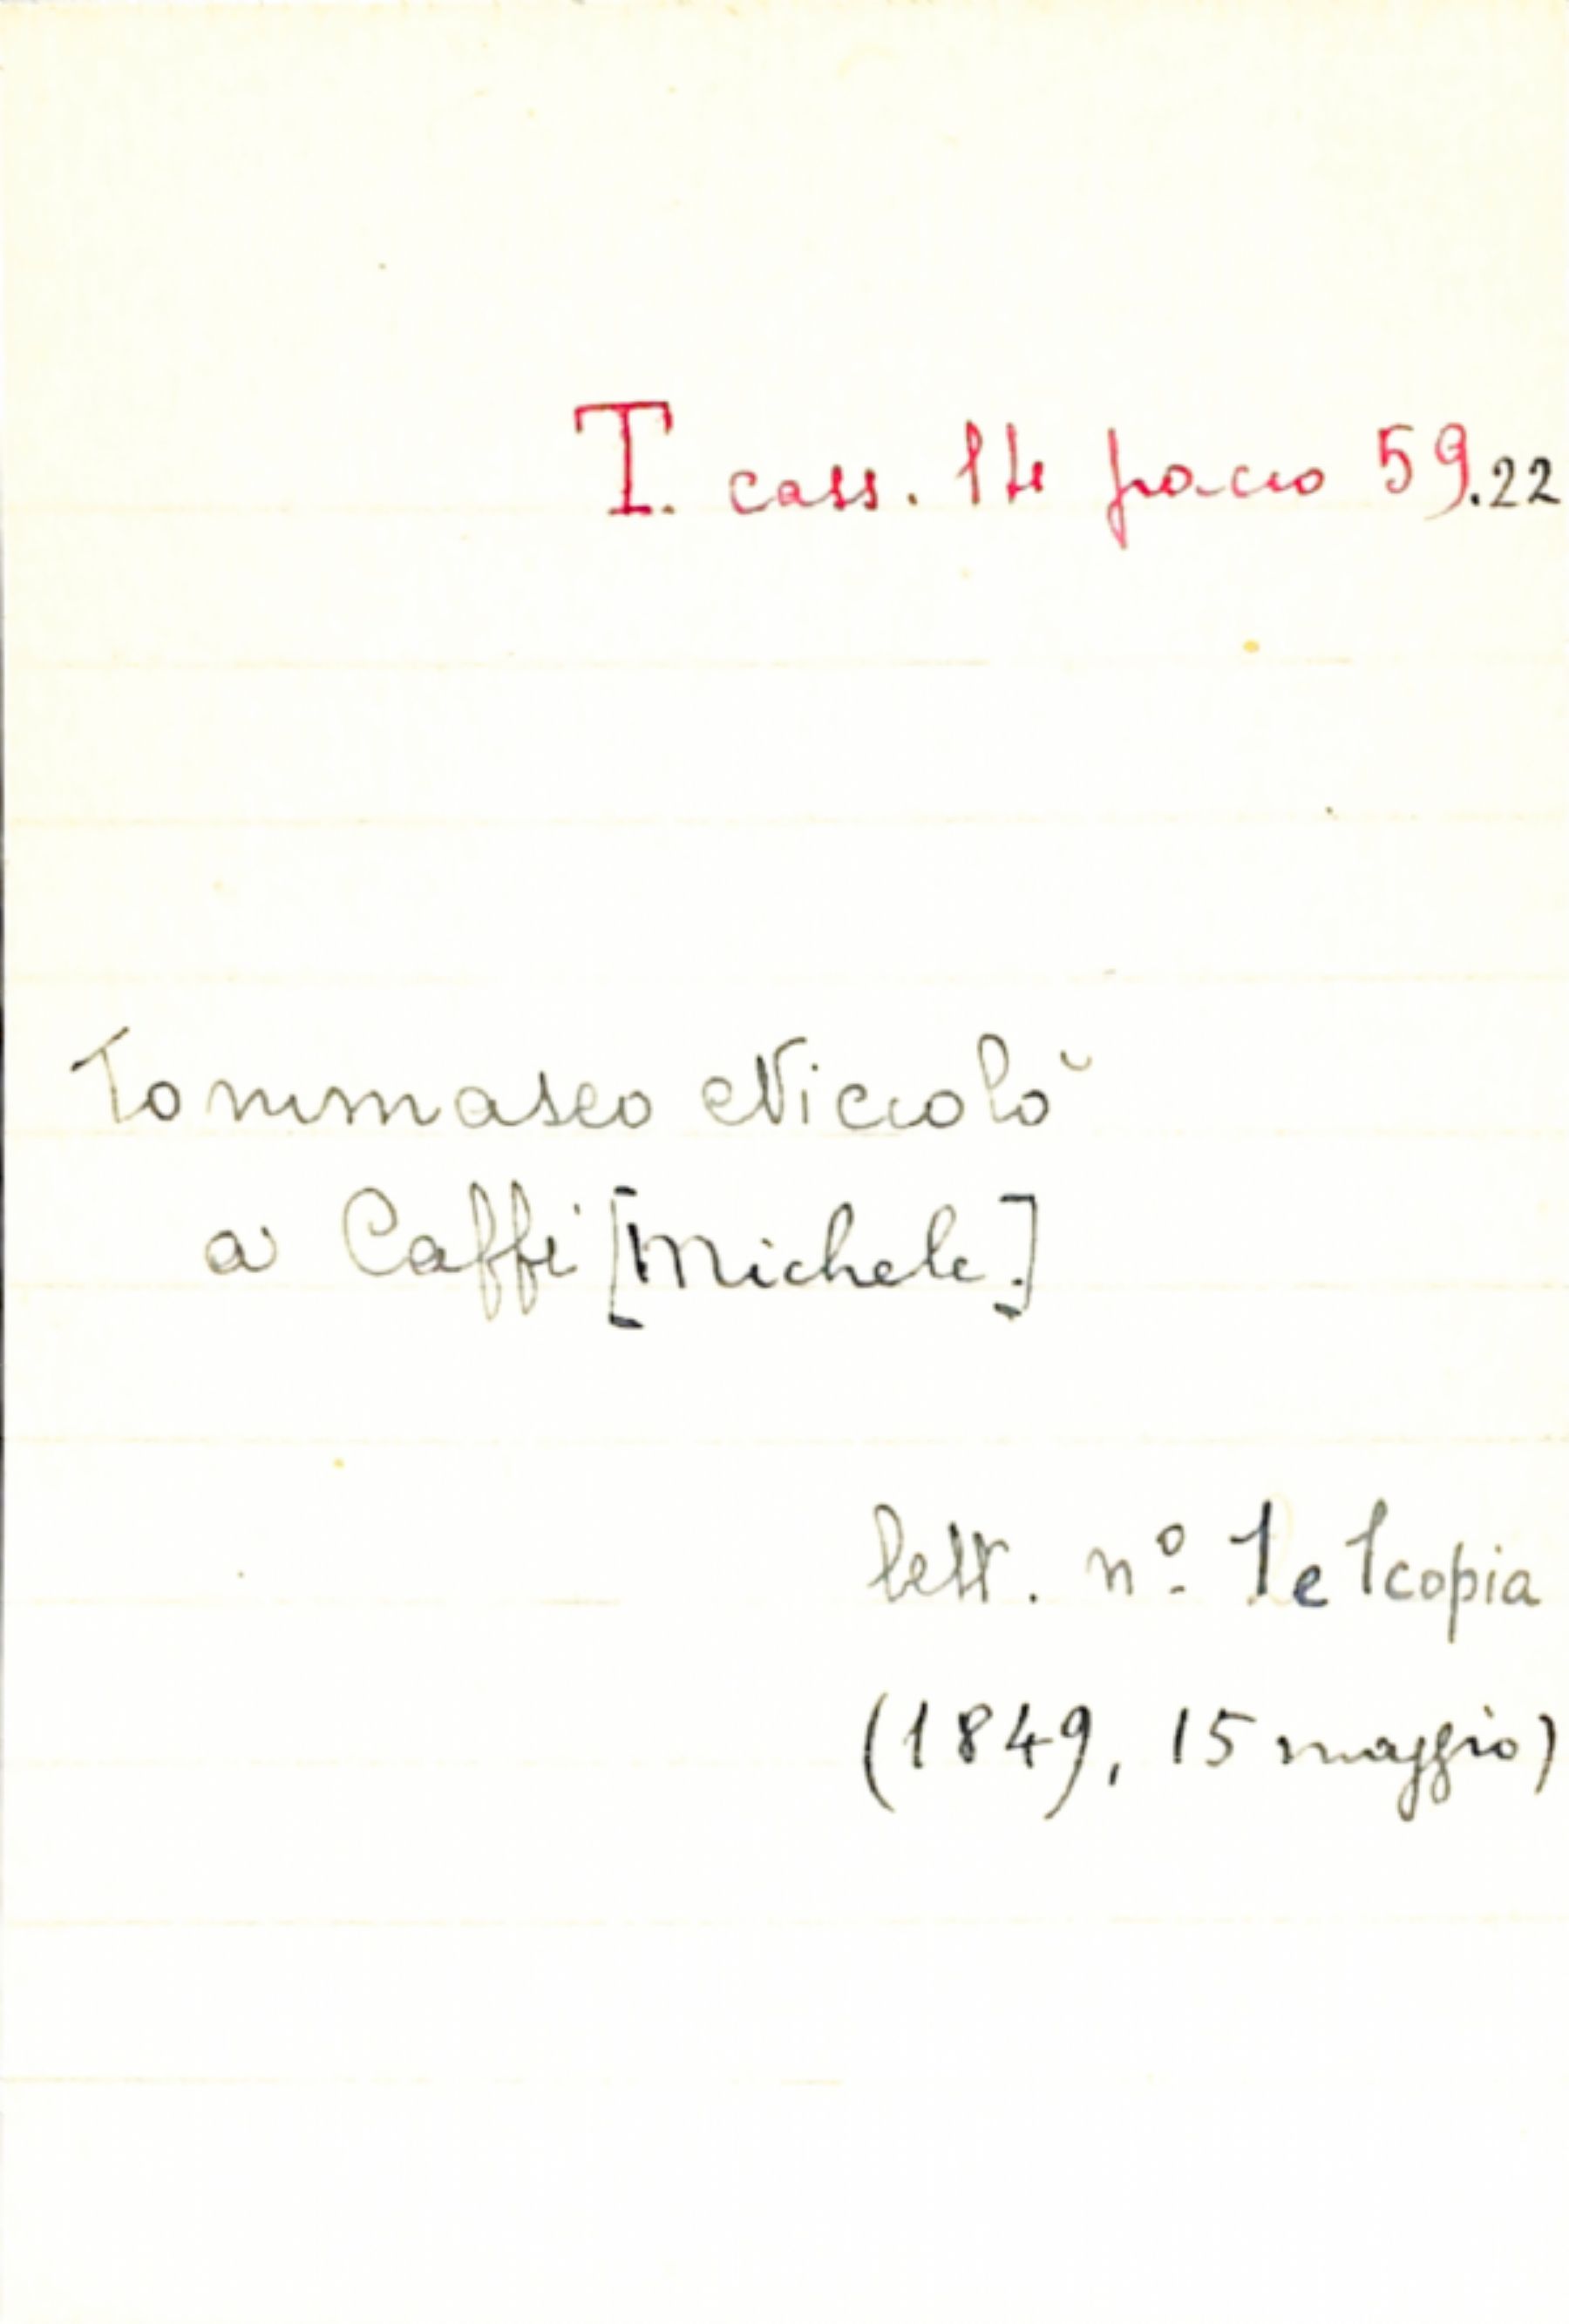 T. cass. 14 pacco 59.22
Tommaseo Niccolò
a Caffi [Michele.]
lett. nº 1 e 1 copia
(1849, 15 maggio)